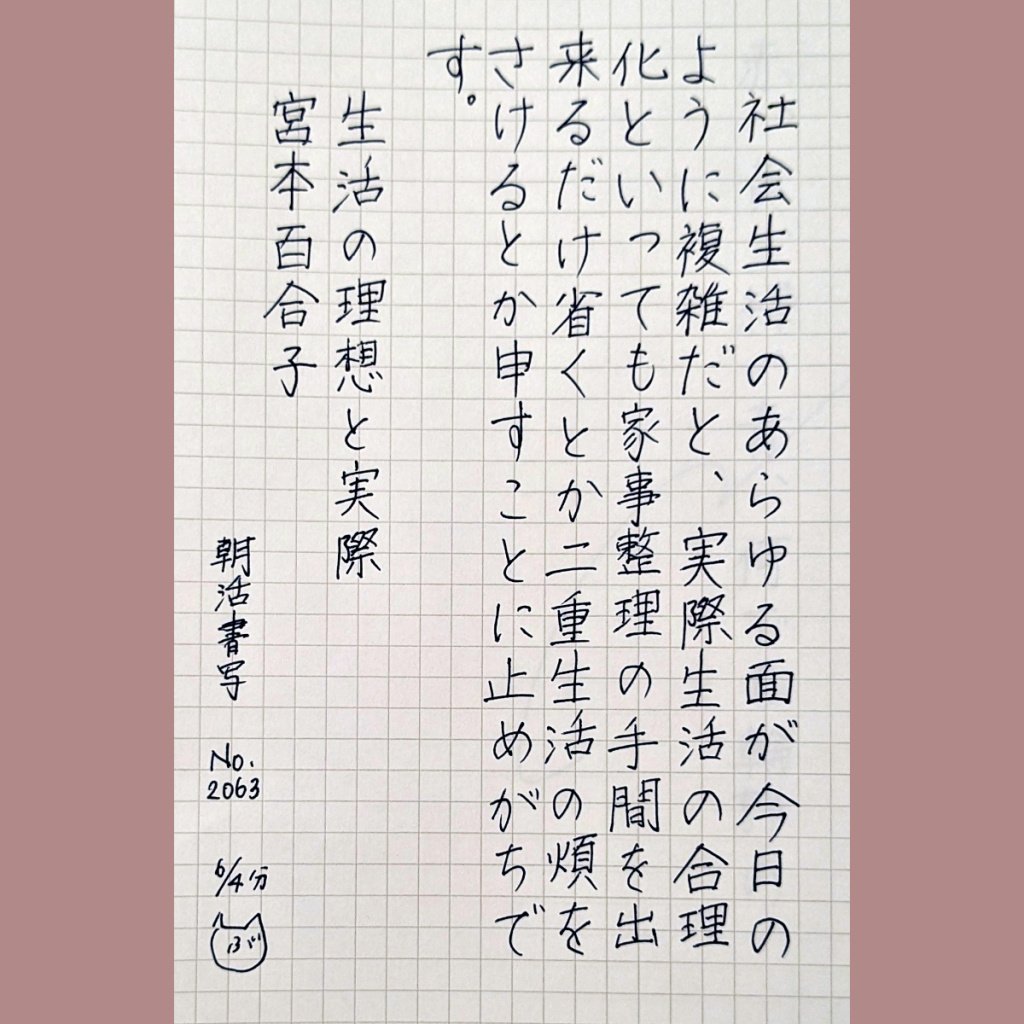 社会生活のあらゆる面が今日の
ように複雑だと、実際生活の合理
化といっても家事整理の手間を出
来るだけ省くとか二重生活の煩を
さけるとか申すことに止めがちで
す。
生活の理想と実際
宮本百合子
朝活書写
No.
2063
6/4分